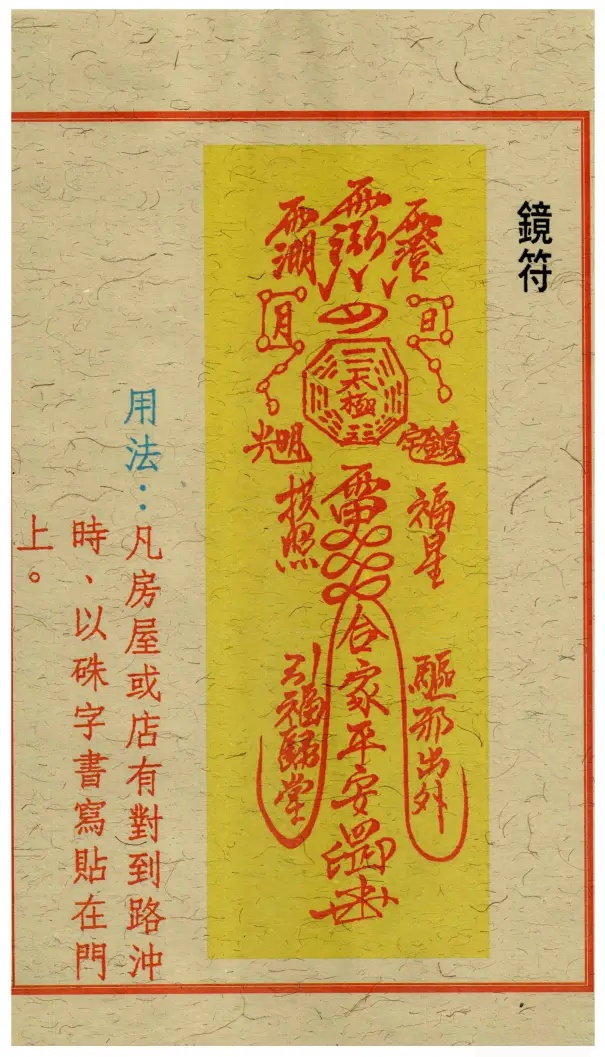 鏡符
日
月
太極
鎮宅
光明
福星
拱照
合家平安
驅邪出外
引福歸堂
用法：凡房屋或店有對到路沖
時、以硃字書寫貼在門
上。